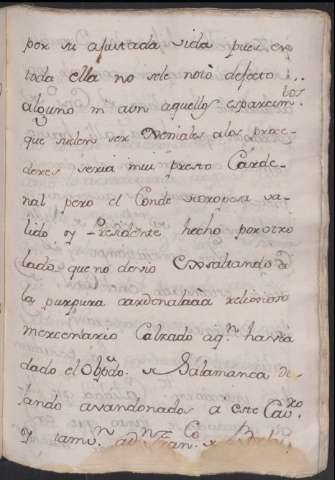 por su ajustada vida pues en
toda ella no sele notò defecto
alguno ni aun aquellos esparcim.tos
que suelen ser Veniales alos proce-
deres seria mui presto Carde-
nal pero el Conde va-
lido y Presidente hecho por otro
lado que no devio Exsaltando â
la purpura cardenalicia relixioso
mercenario Calzado aqn havia
dado el Obpdo. de Salamanca de-
jando avandonados a este Cavro
y tamn. a Dn Franco de